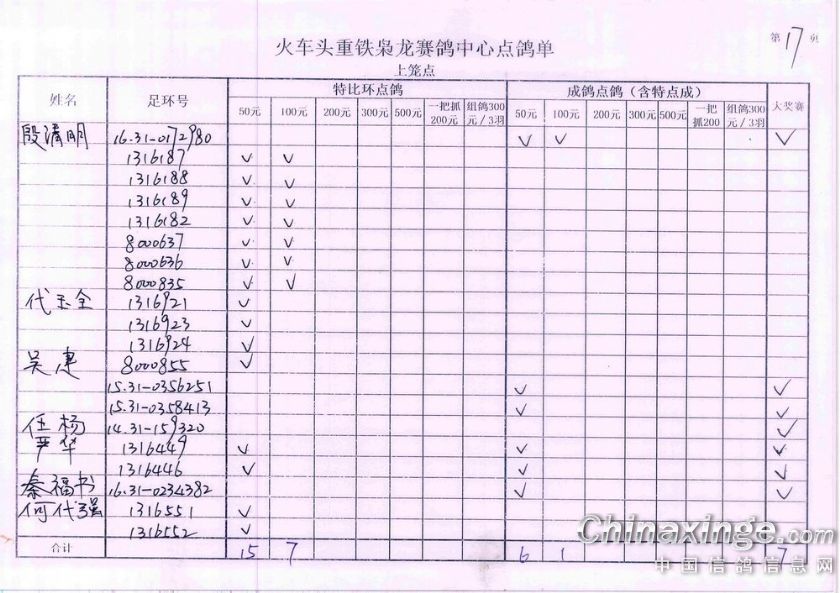 第17页
火车头重铁枭龙赛鸽中心点鸽单
上笼点
姓名 足环号 特比环点鸽 成鸽点鸽（含特点成） 大奖赛
50元 100元 200元 300元 500元 一把抓200元 组鸽300元/3羽 50元 100元 200元 300元 500元 一把抓200 组鸽300元/3羽
殷清明 16.31-0172980 ✓ ✓ ✓
1316187 ✓ ✓
1316188 ✓ ✓
1316189 ✓ ✓
1316182 ✓ ✓
8000637 ✓ ✓
8000636 ✓ ✓
8000835 ✓ ✓
代玉全 1316921 ✓
1316923 ✓
1316924 ✓
吴惠 8000855 ✓
15.31-0356251 ✓ ✓
15.31-0358413 ✓ ✓
任杨 14.31-159320 ✓
严华 1316449 ✓ ✓ ✓
1316446 ✓ ✓ ✓
秦福书 16.31-0234382 ✓ ✓
何代强 1316551 ✓
1316552 ✓
合计 15 7 6 1 7
Chinaxinge.com
中国信鸽信息网